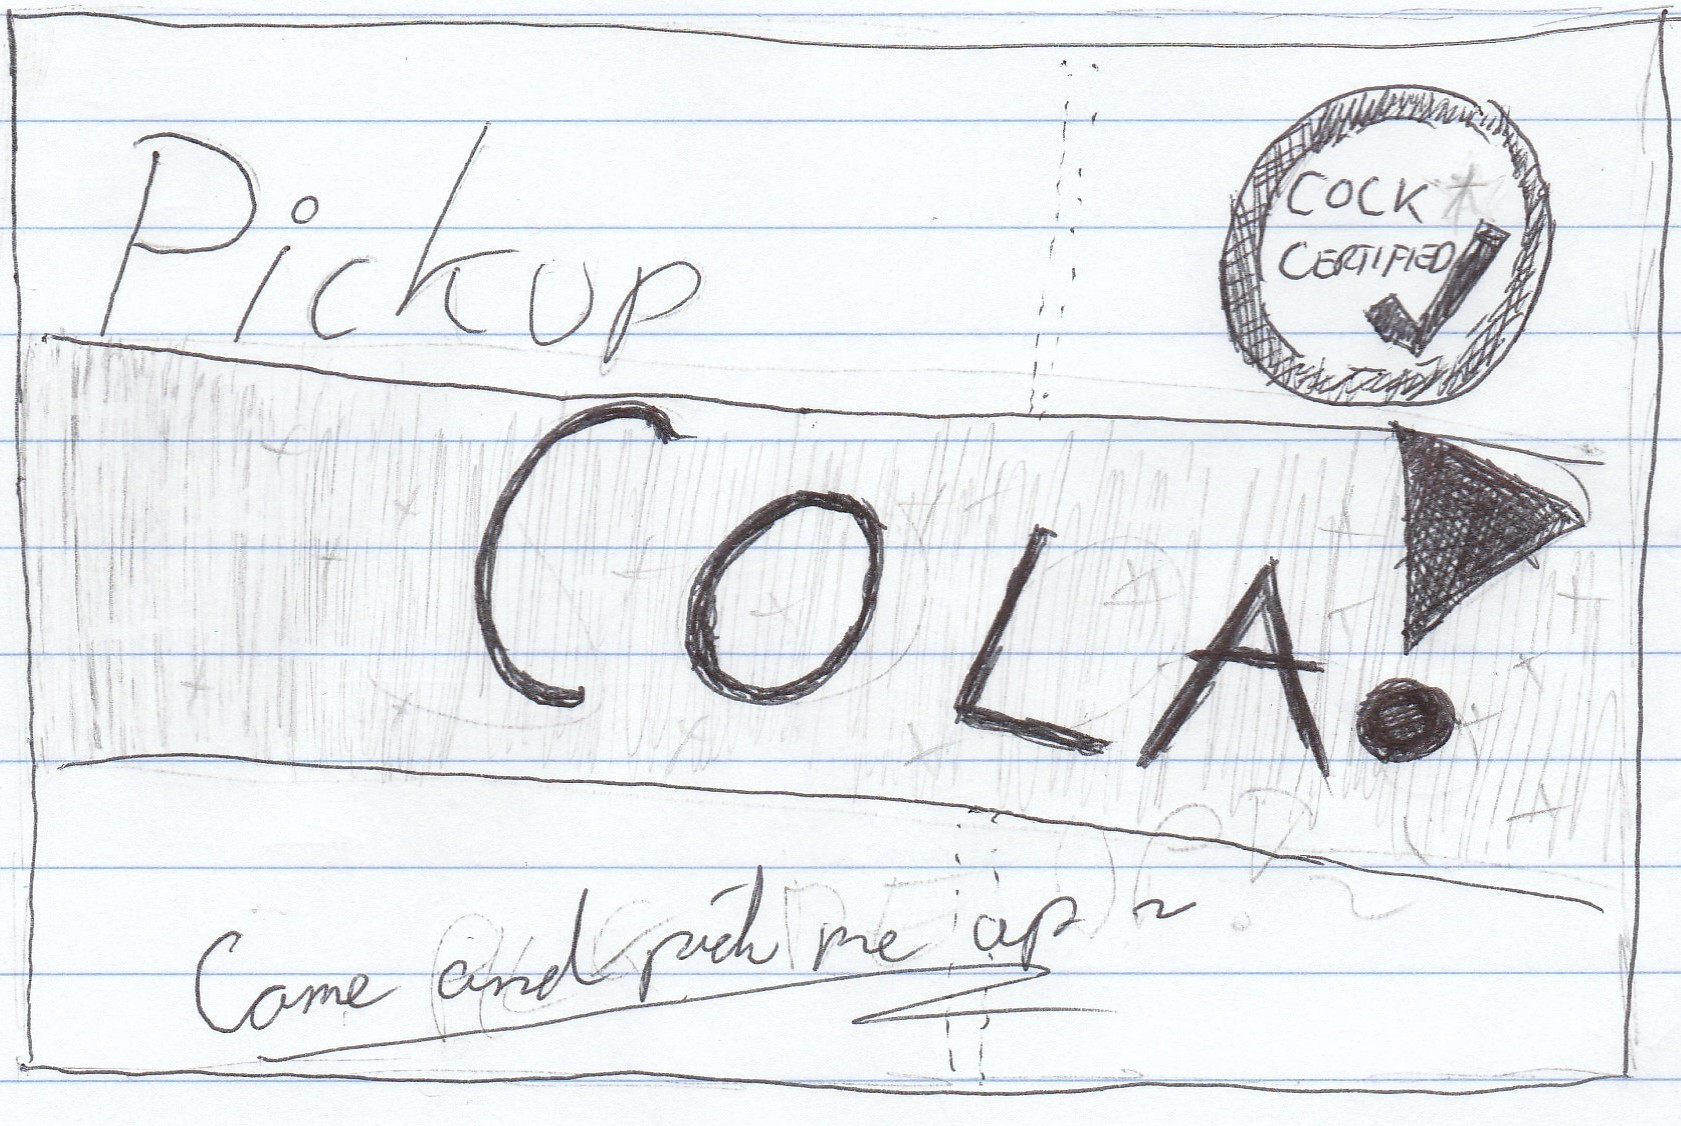 Pickup
COCK
CERTIFIED
COLA!
Come and pick me up ~